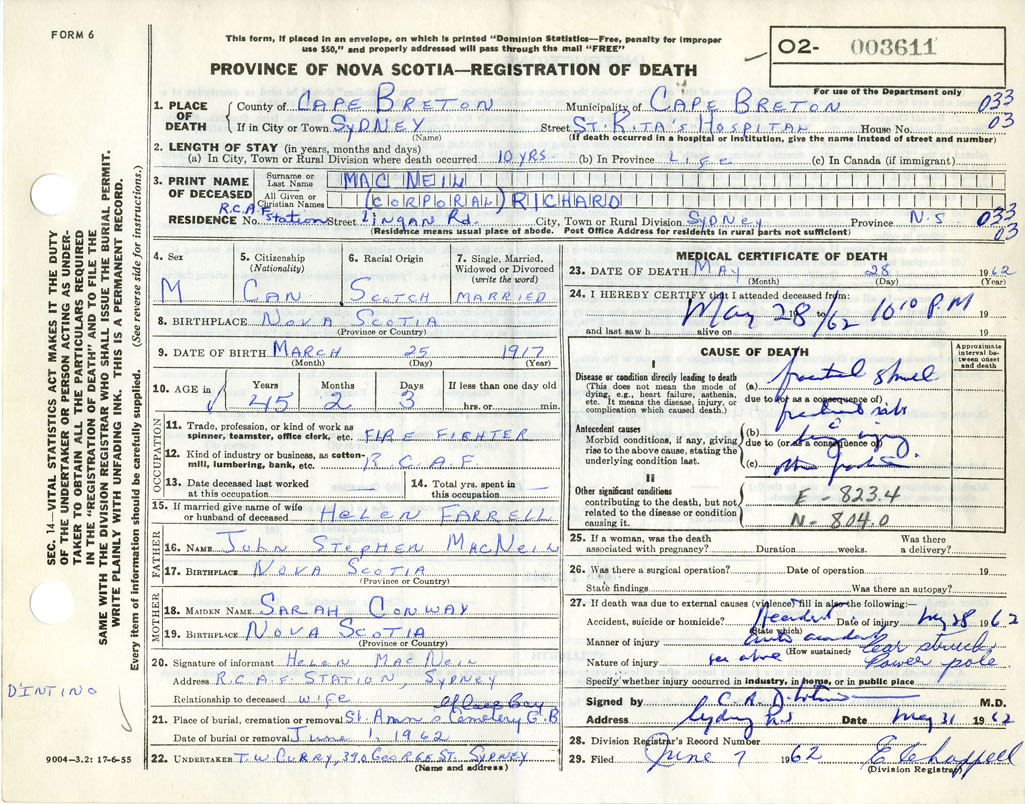 FORM 6
This form, if placed in an envelope, on which is printed "Dominion Statistics—Free, penalty for improper
use $50," and properly addressed will pass through the mail "FREE"
02- 003611
PROVINCE OF NOVA SCOTIA—REGISTRATION OF DEATH
For use of the Department only
1. PLACE OF DEATH County of CAPE BRETON Municipality of CAPE BRETON 033
If in City or Town SYDNEY Street ST. RITA'S HOSPITAL House No. 03
(Name) (If death occurred in a hospital or institution, give the name instead of street and number)
2. LENGTH OF STAY (in years, months and days)
(a) In City, Town or Rural Division where death occurred 10 YRS. (b) In Province Life (c) In Canada (if immigrant)
3. PRINT NAME OF DECEASED Surname or Last Name MAC NEIL
All Given or Christian Names (CORPORAL) RICHARD
RESIDENCE No. R.C.A.F. Station Street Lingan Rd. City, Town or Rural Division SYDNEY Province N.S 033
03
(Residence means usual place of abode. Post Office Address for residents in rural parts not sufficient)
4. Sex M
5. Citizenship (Nationality) CAN.
6. Racial Origin SCOTCH
7. Single, Married, Widowed or Divorced (write the word) MARRIED
8. BIRTHPLACE NOVA SCOTIA
(Province or Country)
9. DATE OF BIRTH MARCH 25 1917
(Month) (Day) (Year)
10. AGE in Years Months Days If less than one day old
45 2 3 hrs. or min.
OCCUPATION
11. Trade, profession, or kind of work as spinner, teamster, office clerk, etc. FIRE FIGHTER
12. Kind of industry or business, as cotton-mill, lumbering, bank, etc. R.C.A.F.
13. Date deceased last worked at this occupation —
14. Total yrs. spent in this occupation —
15. If married give name of wife or husband of deceased HELEN FARRELL
FATHER
16. NAME JOHN STEPHEN MACNEIL
17. BIRTHPLACE NOVA SCOTIA
(Province or Country)
MOTHER
18. MAIDEN NAME SARAH CONWAY
19. BIRTHPLACE NOVA SCOTIA
(Province or Country)
20. Signature of informant HELEN MACNEIL
Address R.C.A.F. STATION, SYDNEY
Relationship to deceased wife
Glace Bay
21. Place of burial, cremation or removal St. Ann's Cemetery G.B
Date of burial or removal June 1, 1962
22. UNDERTAKER T.W. CURRY, 390 GEORGE ST. SYDNEY
(Name and address)
MEDICAL CERTIFICATE OF DEATH
23. DATE OF DEATH MAY 28 1962
(Month) (Day) (Year)
24. I HEREBY CERTIFY that I attended deceased from:
May 28/62 10 10 P.M
19 to 19
and last saw h alive on 19
CAUSE OF DEATH
Approximate interval between onset and death
I
Disease or condition directly leading to death
(This does not mean the mode of dying, e.g., heart failure, asthenia, etc. It means the disease, injury, or complication which caused death.)
(a)
due to (or as a consequence of)
Antecedent causes
Morbid conditions, if any, giving rise to the above cause, stating the underlying condition last.
(b)
due to (or as a consequence of)
(c)
II
Other significant conditions
contributing to the death, but not related to the disease or condition causing it.
E - 823.4
N - 804.0
25. If a woman, was the death associated with pregnancy? Duration weeks. Was there a delivery?
26. Was there a surgical operation? Date of operation 19
State findings Was there an autopsy?
27. If death was due to external causes (violence) fill in also the following:—
Accident, suicide or homicide? Accident Date of injury May 28 1962
(State which)
Manner of injury auto accident Car struck
(How sustained)
Nature of injury see above Power pole
Specify whether injury occurred in industry, in home, or in public place
Signed by M.D.
Address Sydney N.S Date May 31 1962
28. Division Registrar's Record Number
29. Filed June 7 1962 E Chappell
(Division Registrar)
SEC. 14—VITAL STATISTICS ACT MAKES IT THE DUTY
OF THE UNDERTAKER OR PERSON ACTING AS UNDER-
TAKER TO OBTAIN ALL THE PARTICULARS REQUIRED
IN THE "REGISTRATION OF DEATH" AND TO FILE THE
SAME WITH THE DIVISION REGISTRAR WHO SHALL ISSUE THE BURIAL PERMIT.
WRITE PLAINLY WITH UNFADING INK. THIS IS A PERMANENT RECORD.
Every item of information should be carefully supplied. (See reverse side for instructions.)
D'INTINO
9004—3.2: 17-6-55